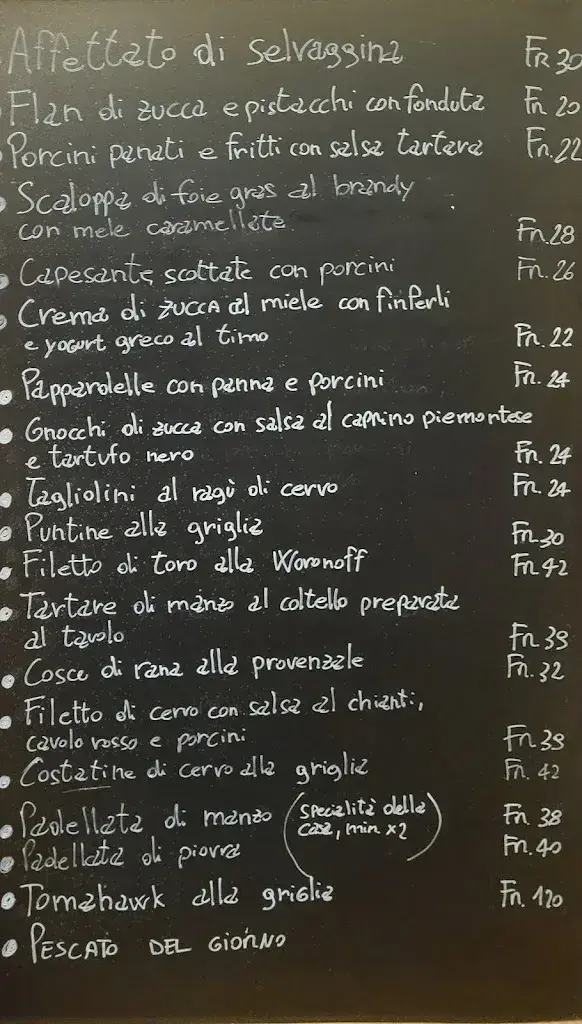 Affettato di selvaggina FR 30
Flan di zucca e pistacchi con fonduta Fr. 20
Porcini panati e fritti con salsa tartara Fr. 22
Scaloppa di foie gras al brandy
con mele caramellate Fr. 28
Capesante scottate con porcini Fr. 26
Crema di zucca al miele con finferli
e yogurt greco al timo Fr. 22
Pappardelle con panna e porcini Fr. 24
Gnocchi di zucca con salsa al caprino piemontese
e tartufo nero Fr. 24
Tagliolini al ragù di cervo Fr. 24
Puntine alla griglia Fr. 30
Filetto di toro alla Woronoff Fr. 42
Tartare di manzo al coltello preparata
al tavolo Fr. 39
Cosce di rana alla provenzale Fr. 32
Filetto di cervo con salsa al chianti,
cavolo rosso e porcini Fr. 39
Costatine di cervo alla griglia Fr. 42
Padellata di manzo (specialità della Fr. 38
casa, min x2)
Padellata di piovra Fr. 40
Tomahawk alla griglia Fr. 120
PESCATO DEL GIORNO